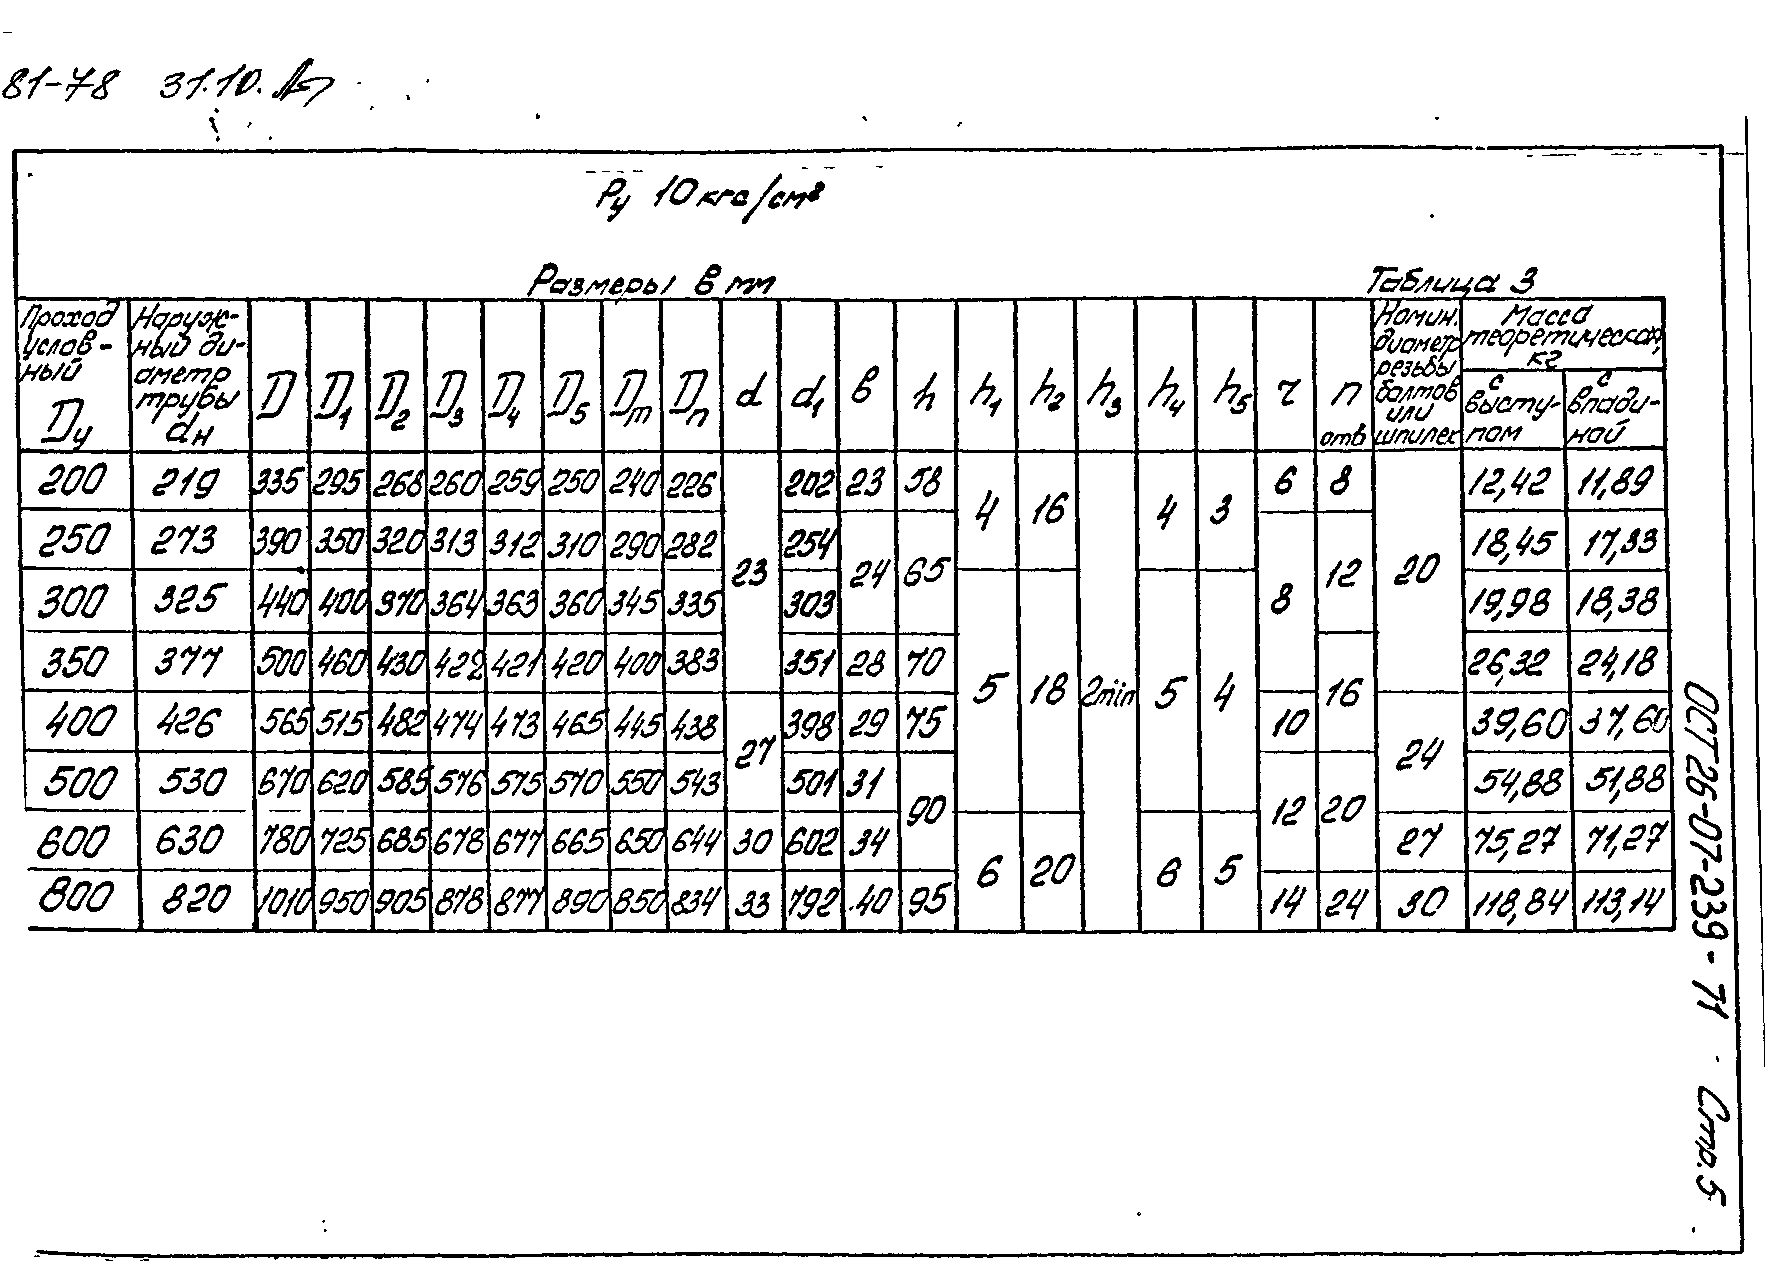 81-78 31.10.
Ру 10кгс/см²
Размеры в мм
Таблица 3
Проход условный Dу | Наружный диаметр трубы dн | D | D1 | D2 | D3 | D4 | D5 | Dm | Dп | d | d1 | в | h | h1 | h2 | h3 | h4 | h5 | r | n отв | Номин. диаметр резьбы болтов или шпилек | Масса теоретическая, кг
с выступом | с впадиной
200 219 335 295 268 260 259 250 240 226 23 202 23 58 4 16 2min 4 3 6 8 20 12,42 11,89
250 273 390 350 320 313 312 310 290 282 254 24 65 8 12 18,45 17,33
300 325 440 400 370 364 363 360 345 335 303 5 18 5 4 19,98 18,38
350 377 500 460 430 422 421 420 400 383 351 28 70 16 26,32 24,18
400 426 565 515 482 474 473 465 445 438 27 398 29 75 10 24 39,60 37,60
500 530 670 620 585 576 575 570 550 543 501 31 90 12 20 54,88 51,88
600 630 780 725 685 678 677 665 650 644 30 602 34 6 20 6 5 27 75,27 71,27
800 820 1010 950 905 878 877 890 850 834 33 792 40 95 14 24 30 118,84 113,14
ОСТ 26-07-239-71 Стр.5